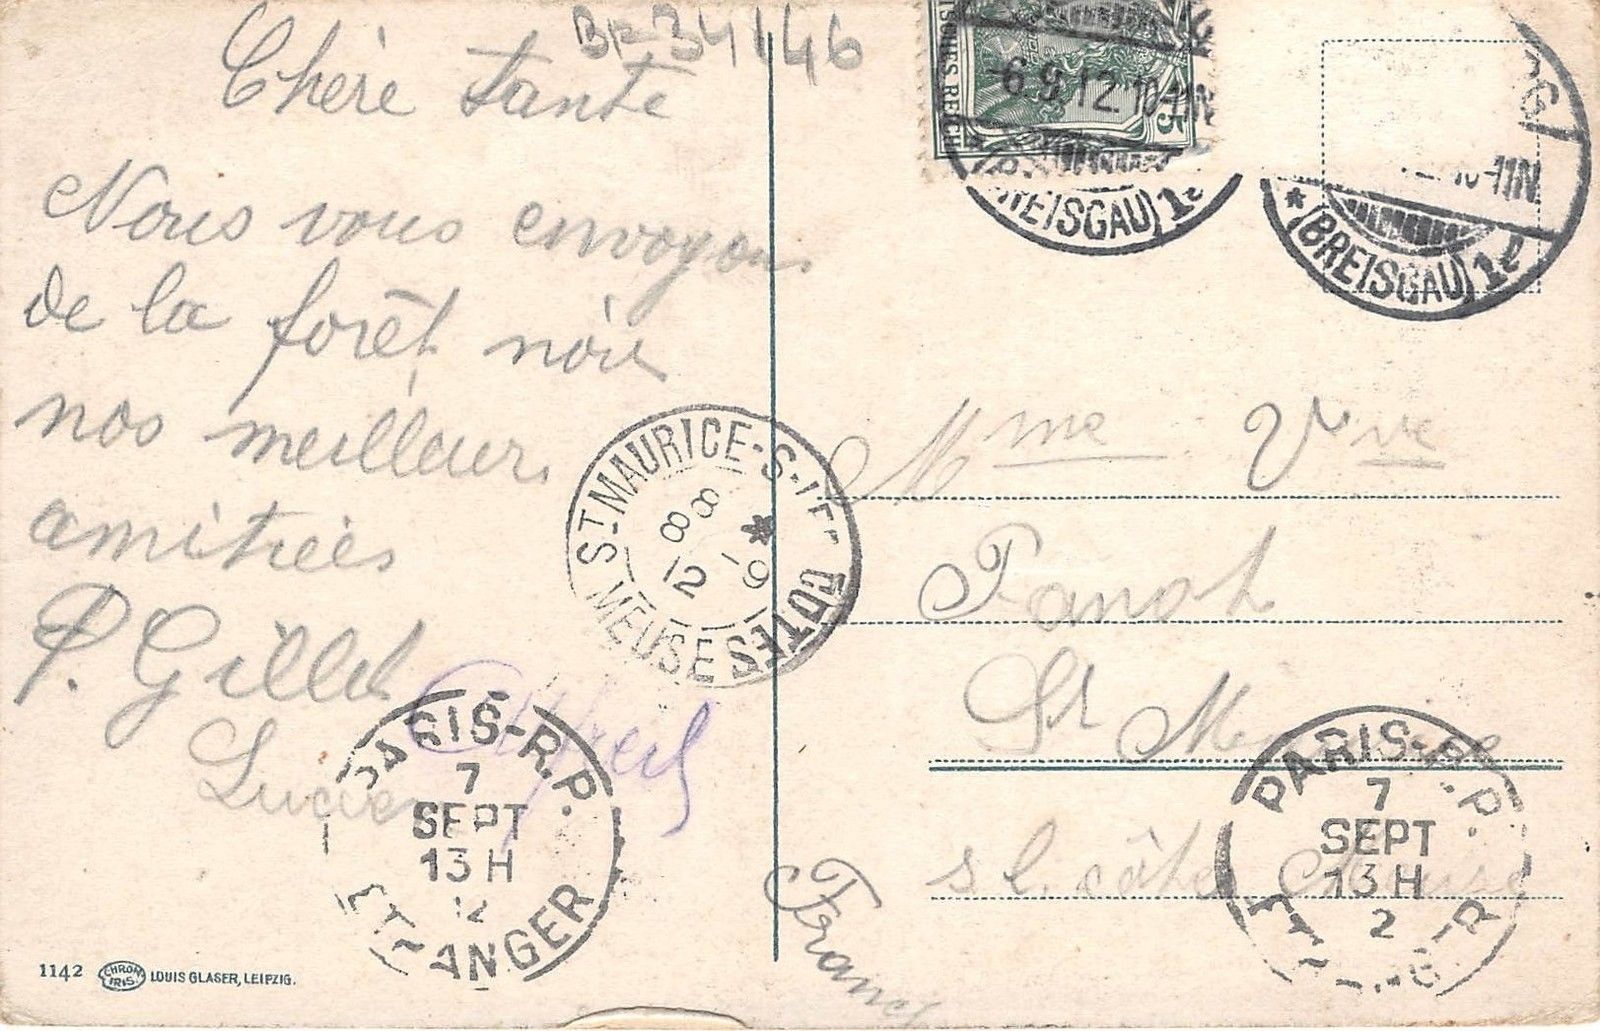 BF-34146
Chère tante
Nous vous envoyons
de la forêt noir
nos meilleurs
amitiées
P. Gillet
Lucien
DEUTSCHES REICH
5
-6.9.12.10-11N
(BREISGAU) 1d
G
12.10-11N
* (BREISGAU) 1d
ST MAURICE-S-LES COTES
8 8
12 -9
*
MEUSE
Mme Vve
Panot
St Maurice
s l. côtes Meuse
France
PARIS-R.P.
7
SEPT
13H
12
ETRANGER
PARIS-R.P.
7
SEPT
13H
2
1142
CHROM
IRIS
LOUIS GLASER, LEIPZIG.